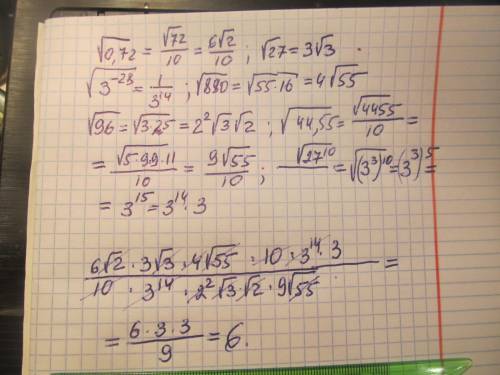 √0,72 = √72/10 = 6√2/10 ; √27 = 3√3 .
√3⁻²⁸ = 1/3¹⁴ ; √880 = √55·16 = 4√55
√96 = √3·2⁵ = 2²√3√2 ; √44,55 = √4455/10 =
= √5·9·9·11/10 = 9√55/10 ; √27¹⁰ = √(3³)¹⁰ = (3³)⁵ =
= 3¹⁵ = 3¹⁴·3
6√2 · 3√3 · 4√55 · 10 · 3¹⁴ · 3
10 · 3¹⁴ · 2²√3·√2 · 9√55 =
= 6·3·3/9 = 6.